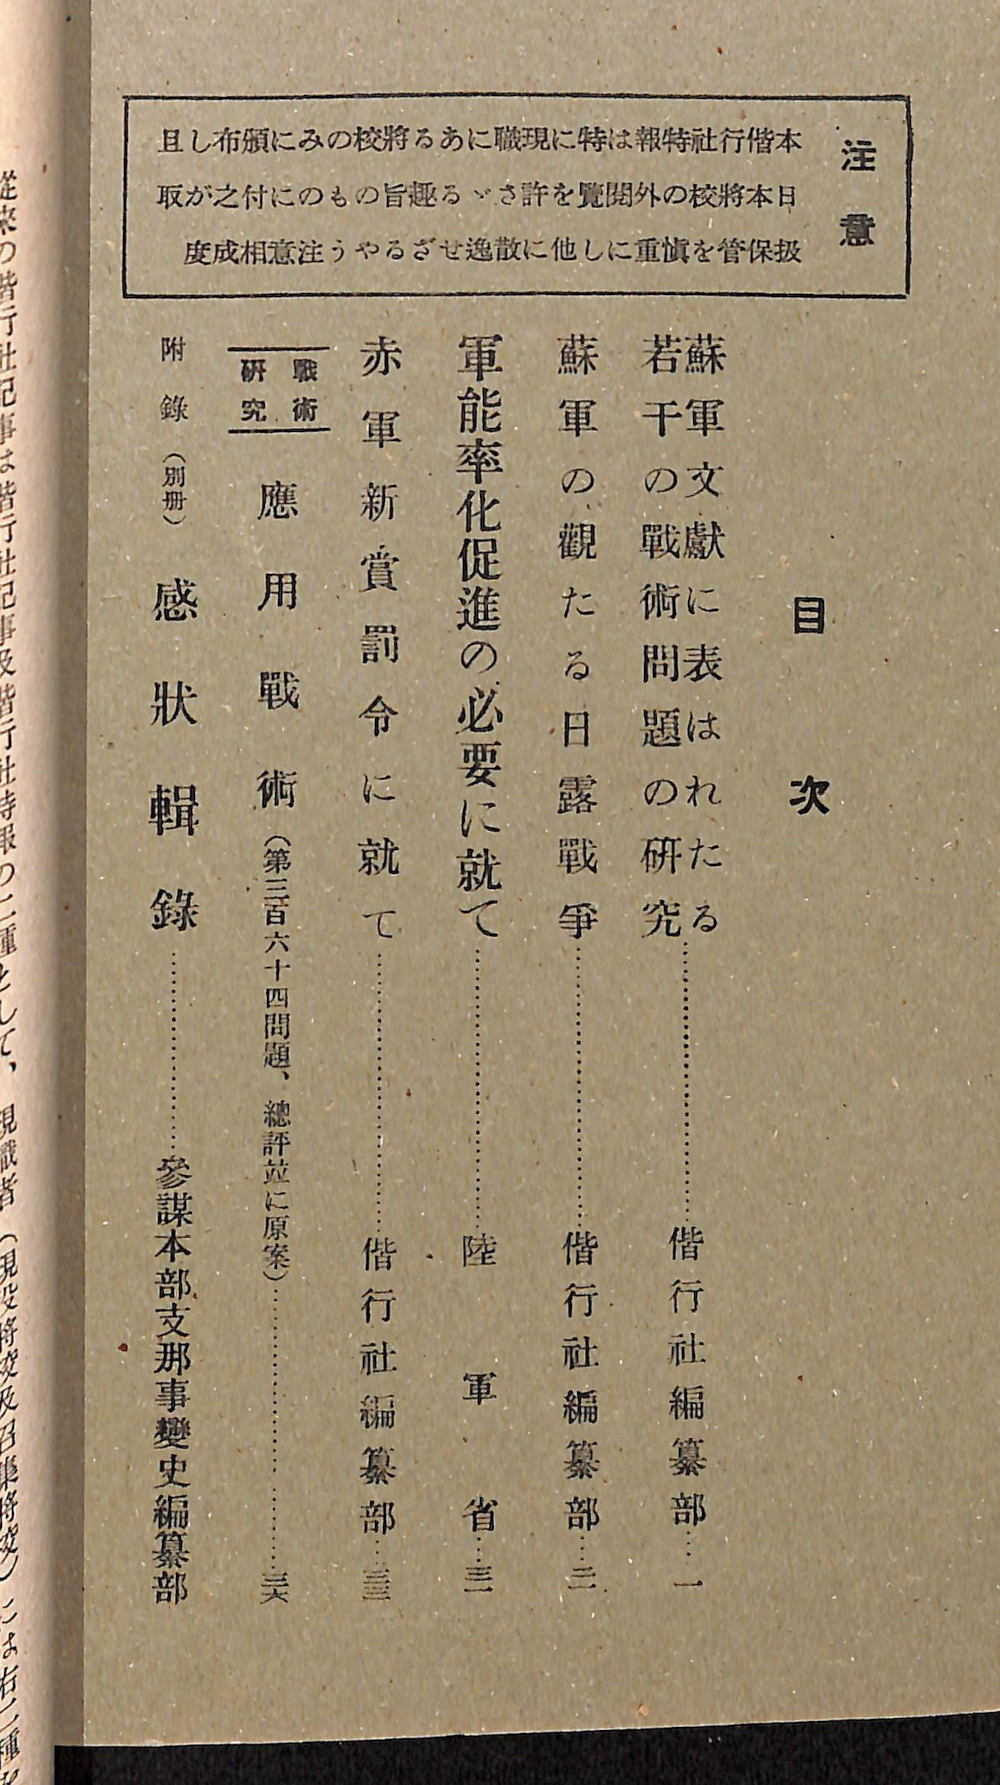 注意
本偕行社特報は特に現職にある將校のみに頒布し且
日本將校の外閲覽を許さゞる趣旨のものに付之が取
扱保管を愼重にし他に散逸せざるやう注意相成度
目次
蘇軍文獻に表はれたる
若干の戰術問題の研究……偕行社編纂部…一
蘇軍の觀たる日露戰爭……偕行社編纂部…二一
軍能率化促進の必要に就て……陸軍省…三一
赤軍新賞罰令に就て……偕行社編纂部…三三
戰術研究 應用戰術(第三百六十四問題、總評竝に原案)……三六
附錄(別册) 感狀輯錄……參謀本部支那事變史編纂部
從來の偕行社記事は偕行社記事及偕行社特報の二種として、現職者(現役將校及召集將校)には右二種